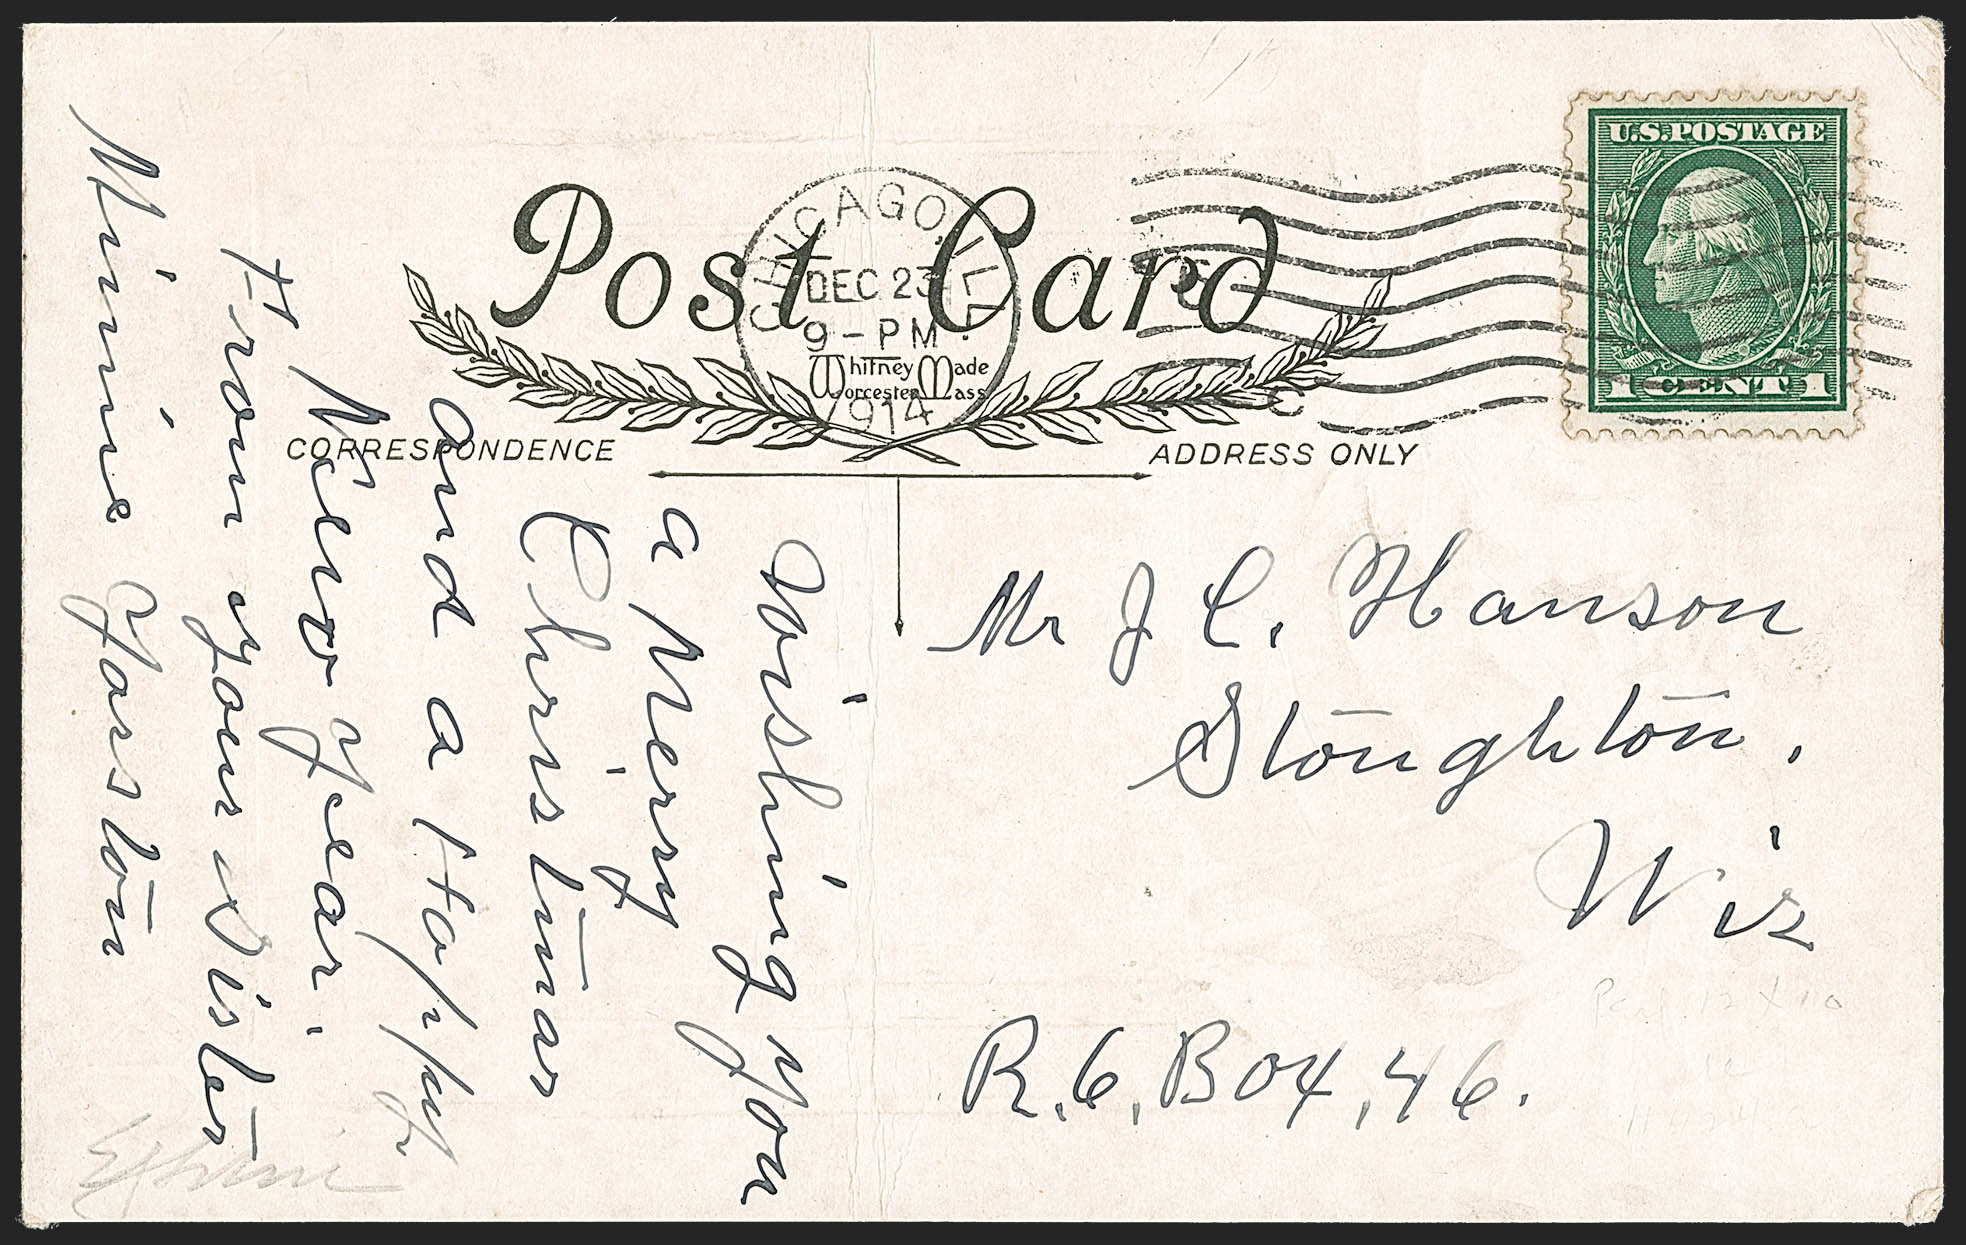 U.S. POSTAGE
1 CENT 1
CHICAGO, ILL.
DEC 23
9 - PM
1914
Post Card
Whitney Made
Worcester Mass
CORRESPONDENCE
ADDRESS ONLY
Wishing you
a Merry
Christmas
and a Happy
New Year.
From your Sister
Minnie Yorston
Mr J. C. Hanson
Stoughton,
Wis
R.6, Box, 46.